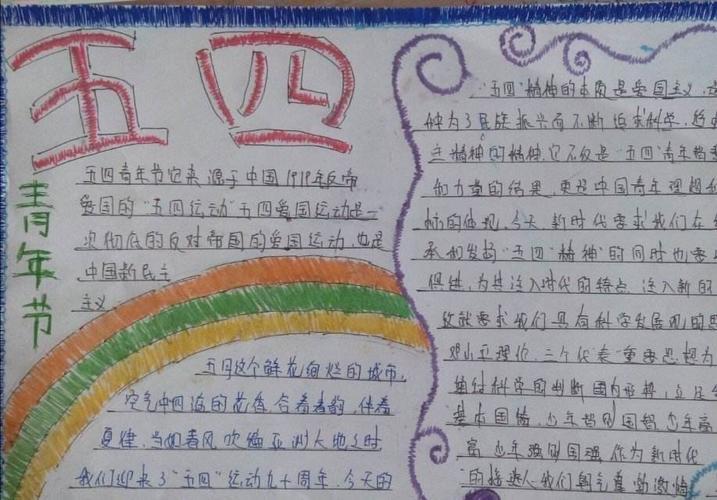 五四
青年节
五四青年节它来源于中国1919年反帝
爱国的“五四运动”五四爱国运动是一
次彻底的反对帝国的爱国运动,也是
中国新民主
主义
五月这个鲜花绚烂的城市,
空气中四溢的花香
夏律,当如春风吹遍亚洲大地之时
我们迎来了“五四”运动九十周年,今天的
“五四”精神的本质是爱国主义,
种为了民族振兴而不断追求科学,
主精神的精神,它不仅是“五四”青年
和力量的结果,更是中国青年理想
标的体现,今天,新时代要求我们在
承和发扬“五四”精神”的同时也要
俱进,为其注入时代的特点,注入新的
这就要求我们具有科学发展观的思
邓小平理论,三个代表”重要思想为
科学的判断国内形势,立足
基本国情,少年智则国智少年高
高少年强则国强,作为新时代
的接班人我们朝气蓬勃激情